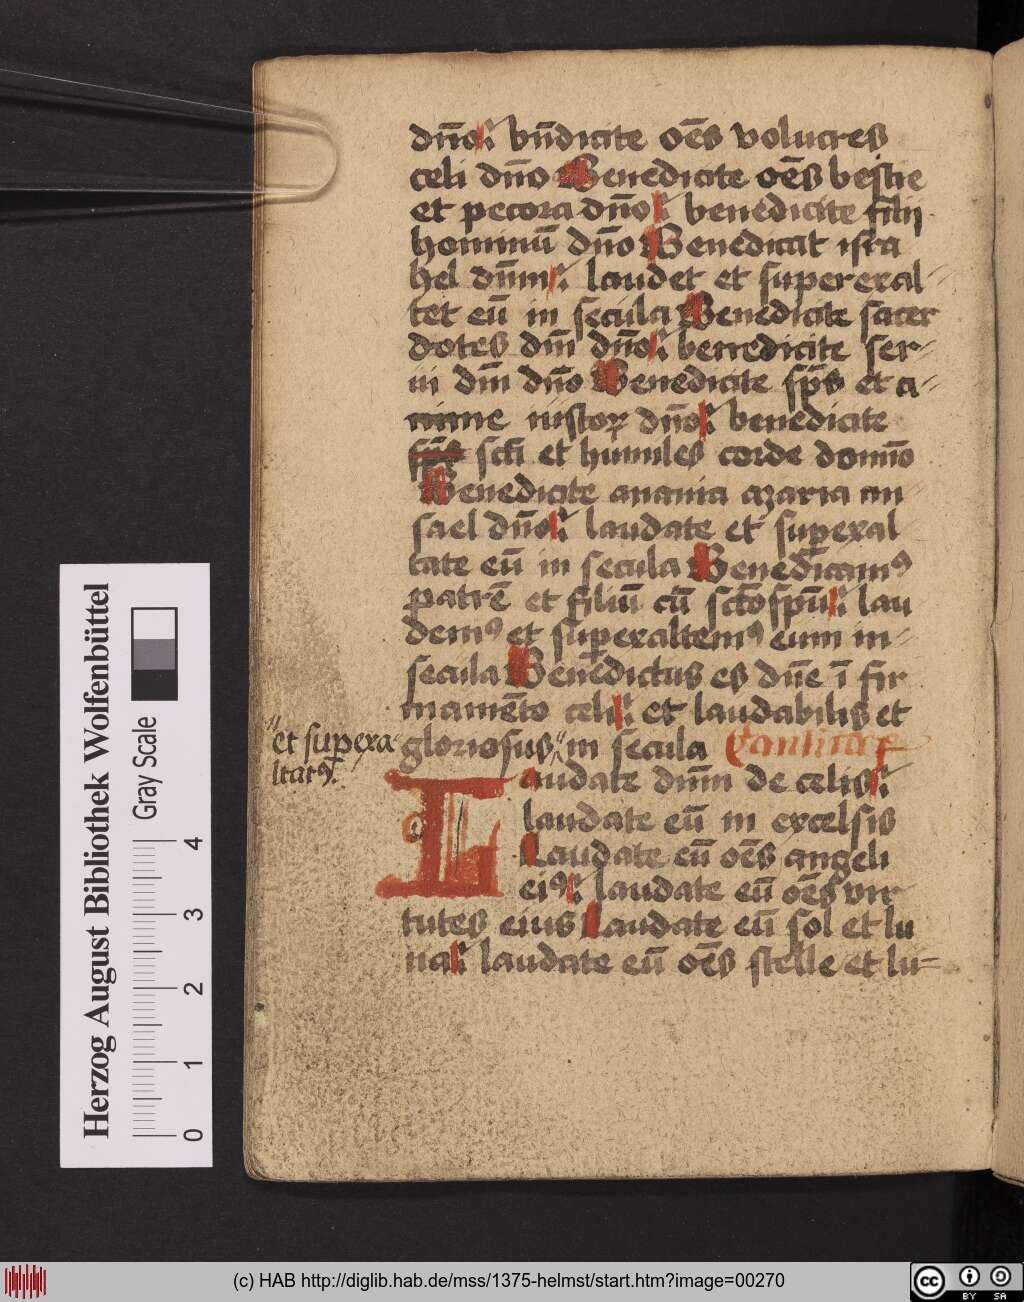 dn̄o bn̄dicite oēs volucres
celi dn̄o Benedicite oēs bestie
et pecora dn̄o benedicite filij
hominū dn̄o Benedicat isra
hel dn̄m laudet et superexal
tet eū in secula Benedicite sacer
dotes dn̄i dn̄o benedicite ser
ui dn̄i dn̄o Benedicite sp̄s et a
nime iustoꝝ dn̄o benedicite
sp̄s sc̄i et humiles corde domīo
Benedicite anania azaria mi
sael dn̄o laudate et suꝑexal
tate eū in secula Benedicamꝰ
patrē et filiū cū sc̄o sp̄u lau
demꝰ et suꝑexaltemꝰ eum in
secula Benedictus es dn̄e ī fir
mamēto celi et laudabilis et
gloriosus in secula
et suꝑexa
ltatꝰ
Laudate dn̄m de celis
laudate eū in excelsis
Laudate eū oēs angeli
eiꝰ laudate eū oēs vir
tutes eius Laudate eū sol et lu
na laudate eū oēs stelle et lu
Herzog August Bibliothek Wolfenbüttel
Gray Scale
0 1 2 3 4
(c) HAB http://diglib.hab.de/mss/1375-helmst/start.htm?image=00270
cc BY SA